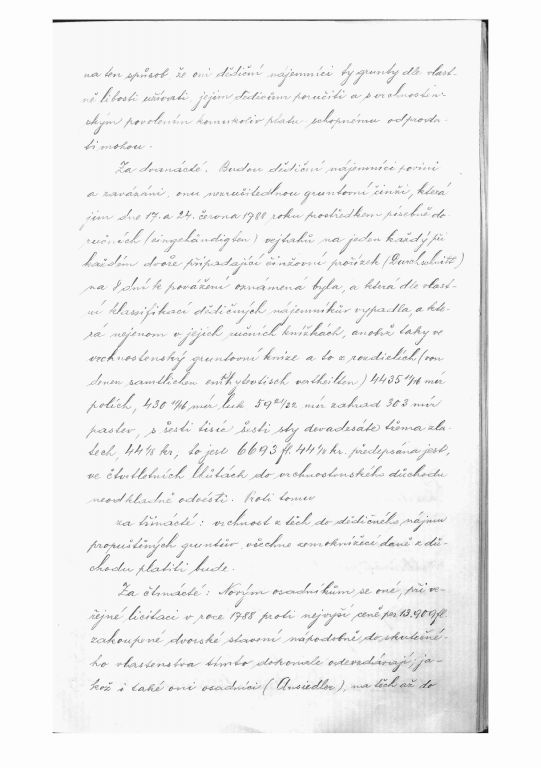 na ten spůsob, že oni dědiční nájemníci ty grunty dle vlast-
ně libosti užívati, jejim dědicům poručiti a s vrchnostin-
ským povolením komukoliv platu schopnému odproda-
ti mohou.
Za dvanácté. Budou dědiční nájemníci povini
a zavázáni, onu nezrušitedlnou gruntovní činži, která
jim dne 17. a 24. června 1788 roku prostředkem písebně do-
ručních (eingehändigten) vejtahů na jeden každý při
každém dvoře připadající činžovní pořízek (Durchschnitt)
na 8 dní k povážení oznámená byla, a která dle vlast-
ní klassifikací dědičných nájemníkův vypadla a kte-
rá nejenom v jejich ručních knížkách, anobrž taky ve
vrchnostenský gruntovní knize a to z rozdielích (von
denen samtlichen emphytevtisch vertheilten) 4435 měr
polích, 430 měr luk 59 měr zahrad 303 měr
pastev, s šesti tisíc šesti sty devadesáte třema zla-
tech, 44 kr, to jest 6693 fl. 44 kr. předepsána jest,
ve čtvrtletních lhůtách do vrchnostenského důchodu
neodkladně odvésti. Proti tomu
za třinácté: vrchnost z těch do dědičného nájmu
propuštěných gruntův, všechne zemoknížecí daně z dů-
chodu platiti bude.
Za čtrnácté: Novým osadníkům se oné, při ve-
řejné licitaci v roce 1788 proti nejvyšší ceně per 13.909 fl.
zakoupené dvorské stavení nápodobně do skutečné-
ho vlastenstva tímto dokonale odevzdávají, ja-
kož i také oni osadníci (Ansiedler), na těch až do